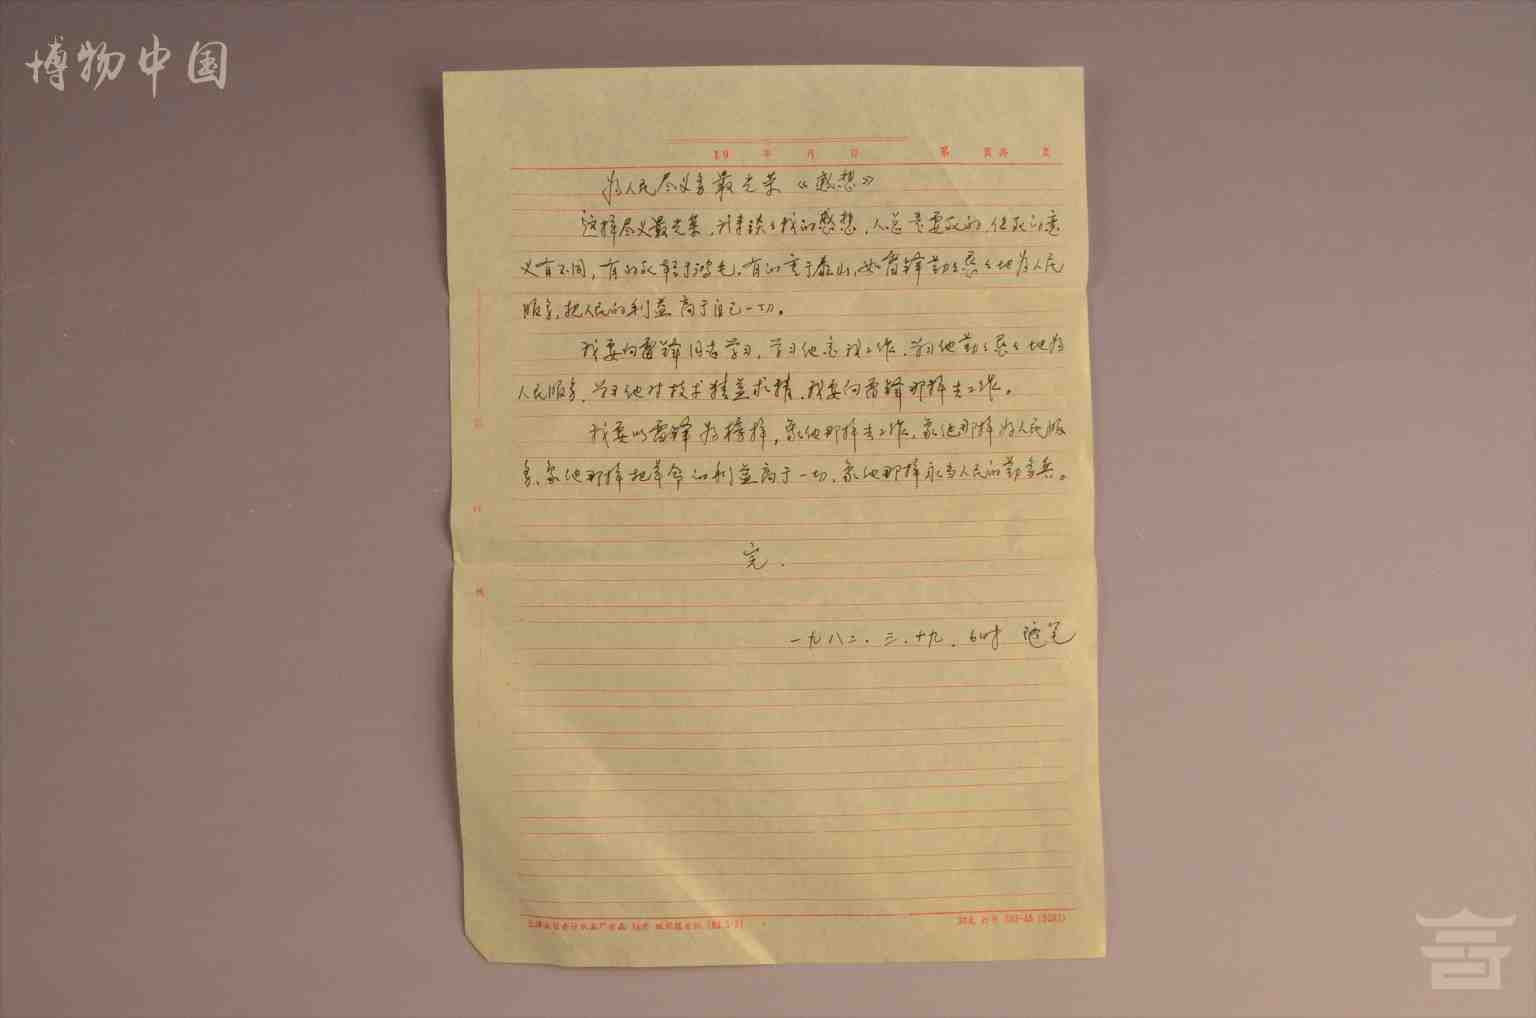 博物中国
19 年 月 日 第 页共 页
为人民尽义务最光荣《感想》
这样尽义最光荣,我来谈谈我的感想,人总是要死的,但死的意
义有不同,有的死轻于鸿毛,有的重于泰山,如雷锋勤勤恳恳地为人民
服务,把人民的利益高于自己一切。
我要向雷锋同志学习,学习他工作,学习他勤勤恳恳地为
人民服务,学习他对技术精益求精,我要向雷锋那样去工作。
我要以雷锋为榜样,象他那样去工作,象他那样为人民服
务,象他那样把革命的利益高于一切,象他那样永当人民的勤务兵。
完.
一九八二.三.十九.6时 随笔